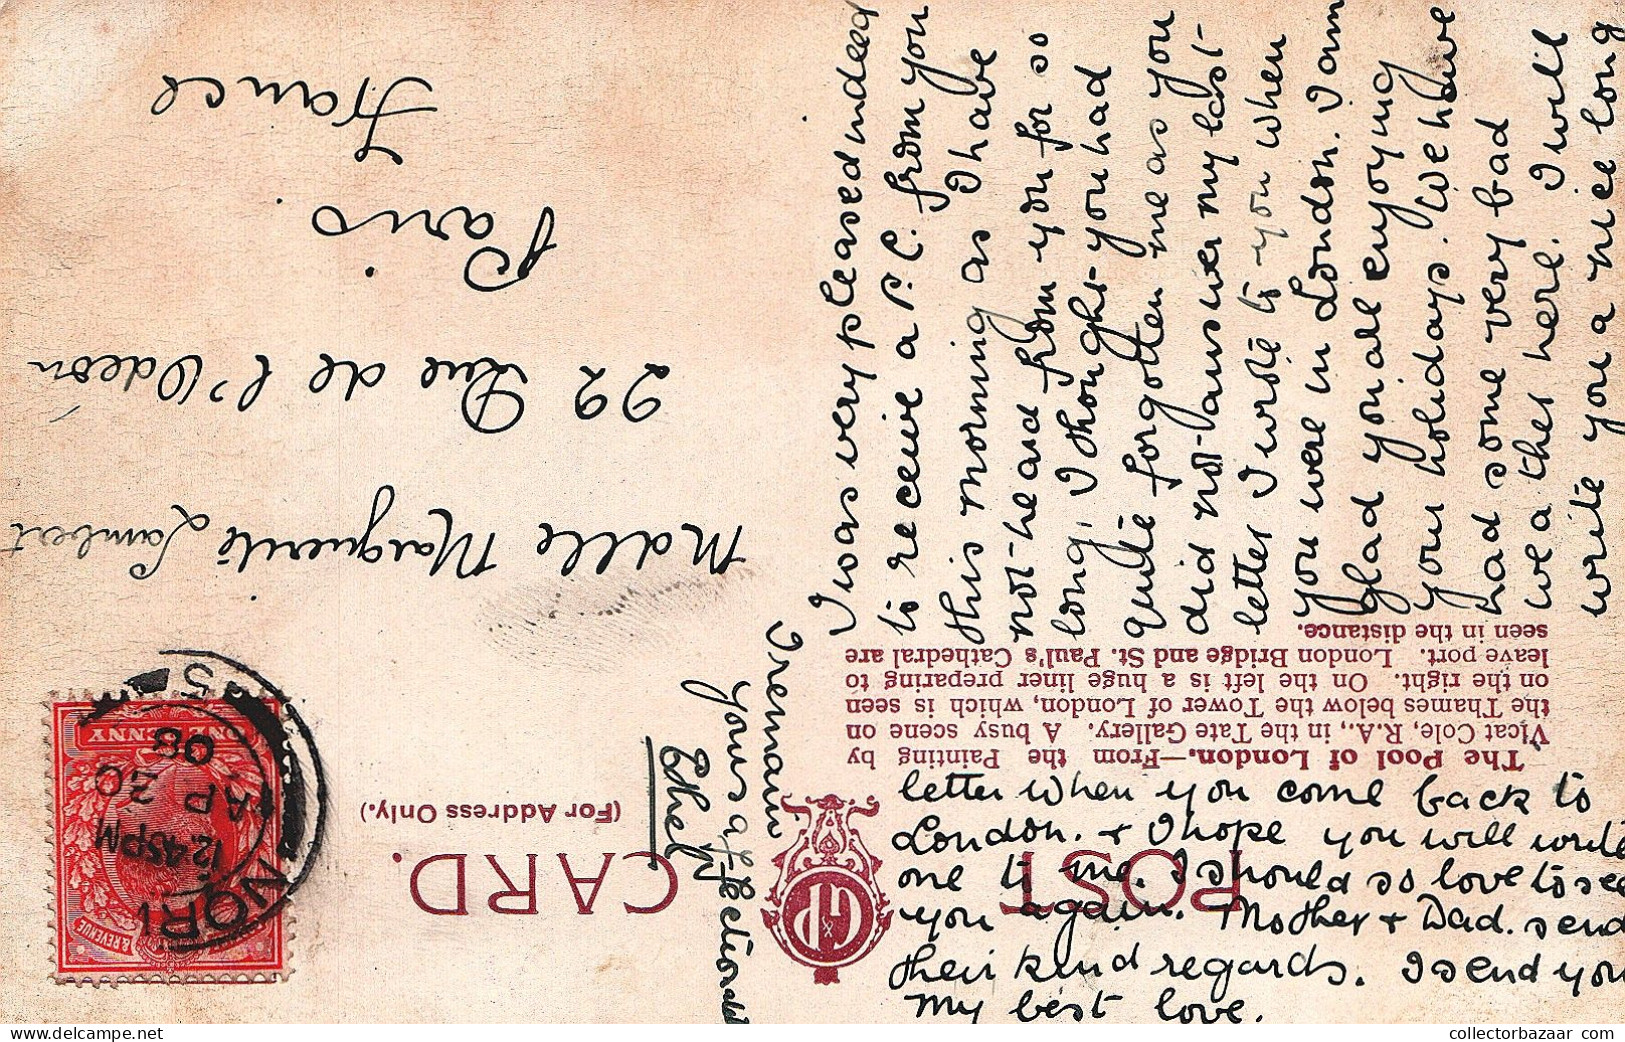 POST CARD.
(For Address Only.)
The Pool of London.—From the Painting by
Vicat Cole, R.A., in the Tate Gallery. A busy scene on
the Thames below the Tower of London, which is seen
on the right. On the left is a huge liner preparing to
leave port. London Bridge and St. Paul's Cathedral are
seen in the distance.
Mdlle Marguerite Lambert
22 Rue de l'Odéon
Paris
France
I was very pleased indeed
to receive a P.C. from you
this morning as I have
not heard from you for so
long, I thought you had
quite forgotten me as you
did not answer my last
letter I wrote to you when
you were in London. I am
glad you are enjoying
your holidays. We have
had some very bad
weather here. I will
write you a nice long
letter when you come back to
London. + I hope you will write
one to me. I should so love to see
you again. Mother + Dad. send
their kind regards. I send you
my best love.
I remain
yours affectionately
Ethel
& REVENUE
ONE PENNY
12.45PM
AP 30
08
collectorbazaar.com